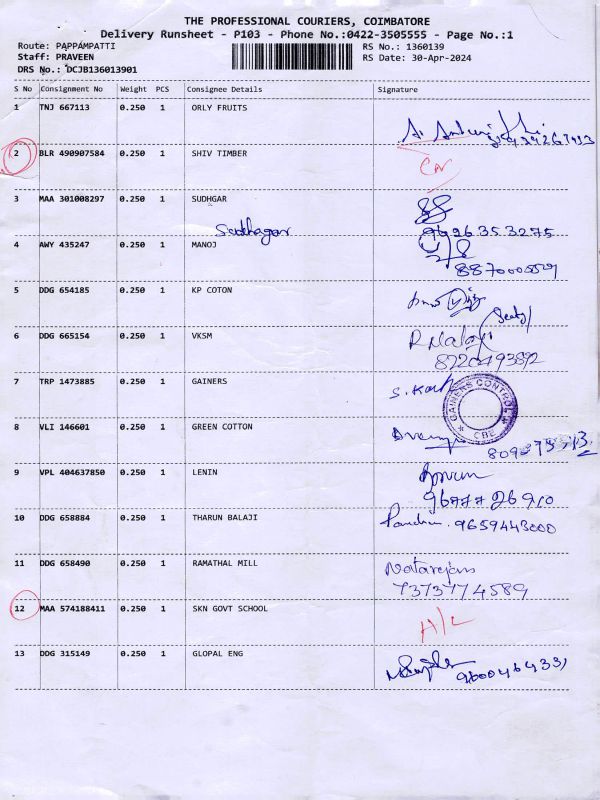 THE PROFESSIONAL COURIERS, COIMBATORE
Delivery Runsheet - P103 - Phone No.:0422-3505555 - Page No.:1
Route: PAPPAMPATTI RS No.: 1360139
Staff: PRAVEEN RS Date: 30-Apr-2024
DRS No.: DCJB136013901
S No Consignment No Weight PCS Consignee Details Signature
1 TNJ 667113 0.250 1 ORLY FRUITS
2 BLR 490907584 0.250 1 SHIV TIMBER
3 MAA 301008297 0.250 1 SUDHGAR
Sudhagar 9626353275
4 AWY 435247 0.250 1 MANOJ
5 DDG 654185 0.250 1 KP COTON
6 DDG 665154 0.250 1 VKSM
7 TRP 1473885 0.250 1 GAINERS
GAINERS CONTROL
CBE
8 VLI 146601 0.250 1 GREEN COTTON
9 VPL 404637850 0.250 1 LENIN
96777 26910
10 DDG 658884 0.250 1 THARUN BALAJI
9659443000
11 DDG 658490 0.250 1 RAMATHAL MILL
Natarajan
7373774589
12 MAA 574188411 0.250 1 SKN GOVT SCHOOL
H/L
13 DDG 315149 0.250 1 GLOPAL ENG